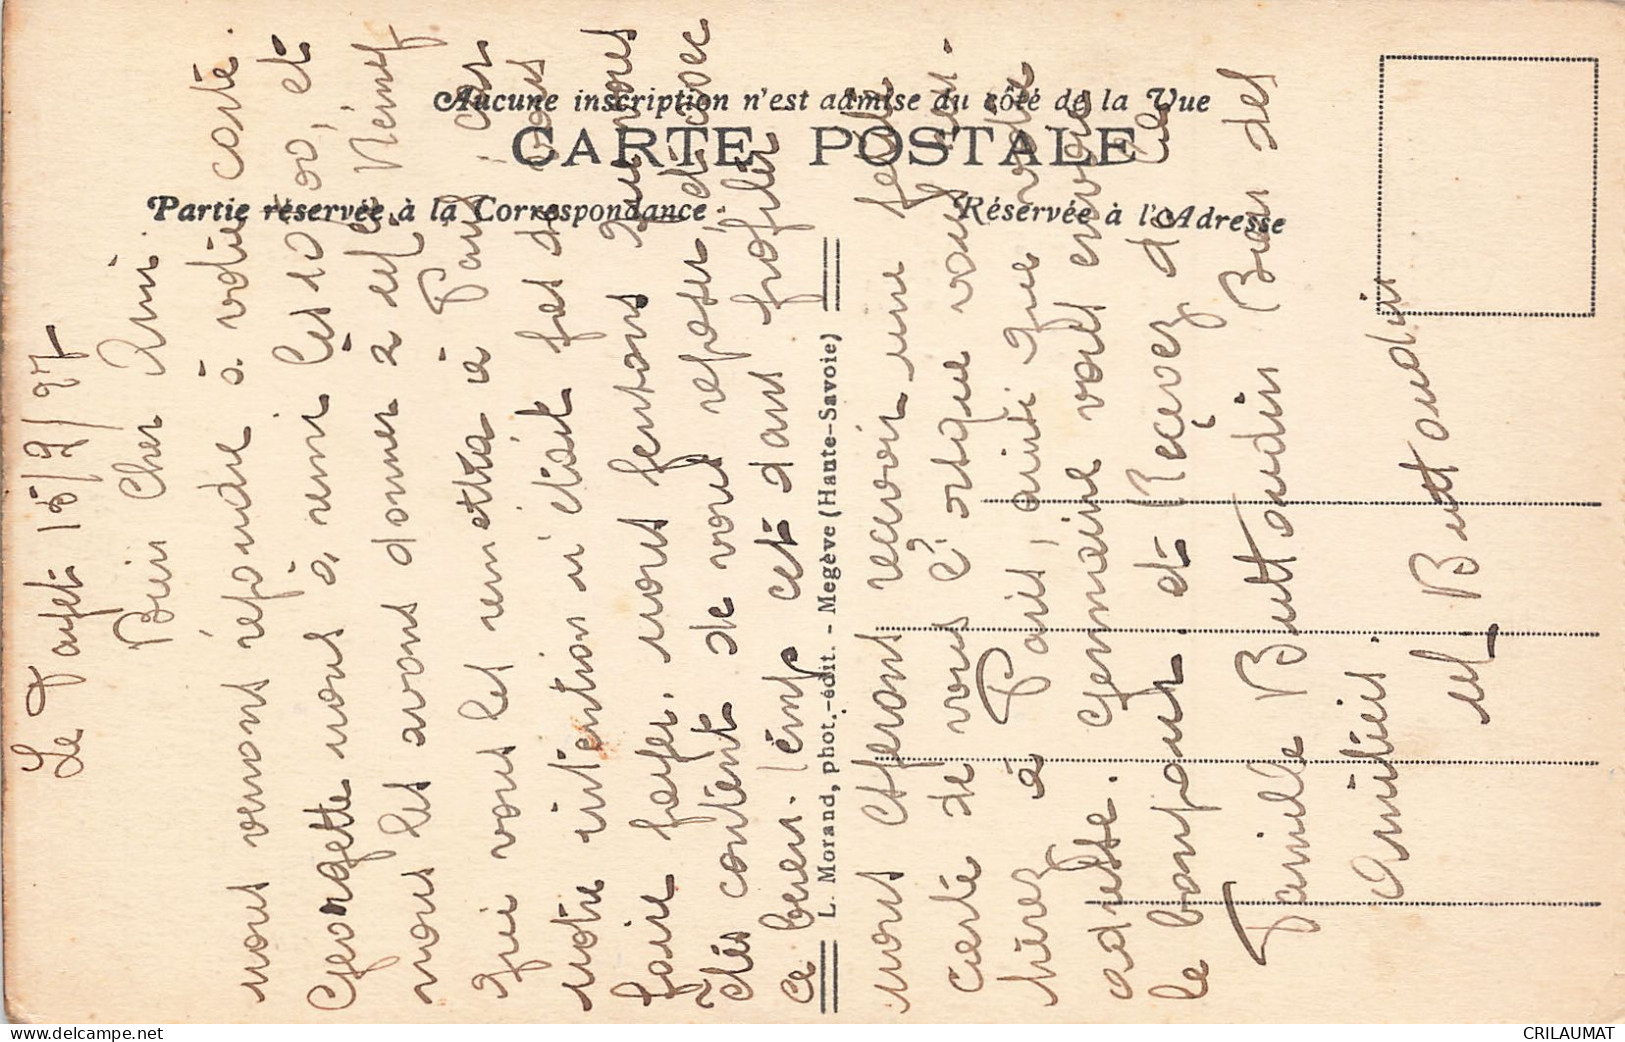 Aucune inscription n'est admise du côté de la Vue
CARTE POSTALE
Partie réservée à la Correspondance
Réservée à l'Adresse
L. Morand, phot.-édit. - Megève (Haute-Savoie)
Le Fayet 15/2/27
Bien Cher Ami.
nous venons répondre à votre carte.
Georgette nous à remi les 10 00, et
nous les avons donner à Né
qui vous les remettra à Paris, car
notre intention n'était pas de vous
faire payer. nous pensons que vous
êtes content de vous reposer, et avec
ce beau temps cet dans profiter
nous esperons recevoir une petite
carte de vous l'orsque vous
à Paris, ainsi que votre
adresse. Germaine vous envoie
le bonjour. et Recevez de la
Famille Buttoudin Bien des
Amitiés.
Buttoudin
www.delcampe.net
CRILAUMAT